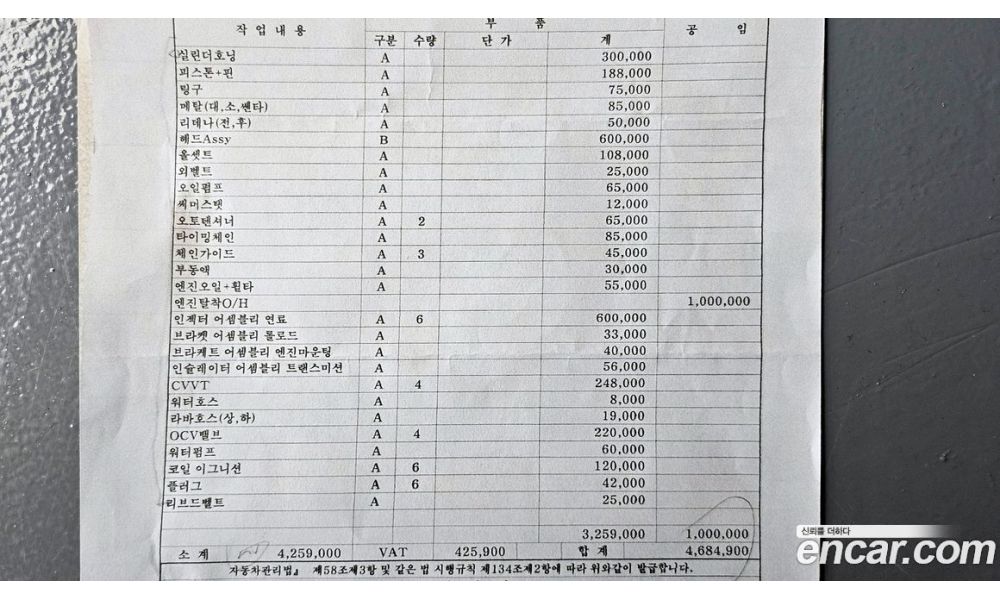 작업내용 부 품 공 임
구분 수량 단 가 계
실린더호닝 A 300,000
피스톤+핀 A 188,000
링구 A 75,000
메탈(대,소,쎈타) A 85,000
리데나(전,후) A 50,000
헤드Assy B 600,000
올셋트 A 108,000
외벨트 A 25,000
오일펌프 A 65,000
써머스탯 A 12,000
오토텐셔너 A 2 65,000
타이밍체인 A 85,000
체인가이드 A 3 45,000
부동액 A 30,000
엔진오일+휠타 A 55,000
엔진탈착O/H 1,000,000
인젝터 어셈블리 연료 A 6 600,000
브라켓 어셈블리 롤로드 A 33,000
브라케트 어셈블리 엔진마운팅 A 40,000
인슐레이터 어셈블리 트랜스미션 A 56,000
CVVT A 4 248,000
워터호스 A 8,000
라바호스(상,하) A 19,000
OCV밸브 A 4 220,000
워터펌프 A 60,000
코일 이그니션 A 6 120,000
플러그 A 6 42,000
리브드벨트 A 25,000
3,259,000 1,000,000
소 계 4,259,000 VAT 425,900 합 계 4,684,900
자동차관리법』 제58조제3항 및 같은 법 시행규칙 제134조제2항에 따라 위와같이 발급합니다.
신뢰를 더하다
encar.com